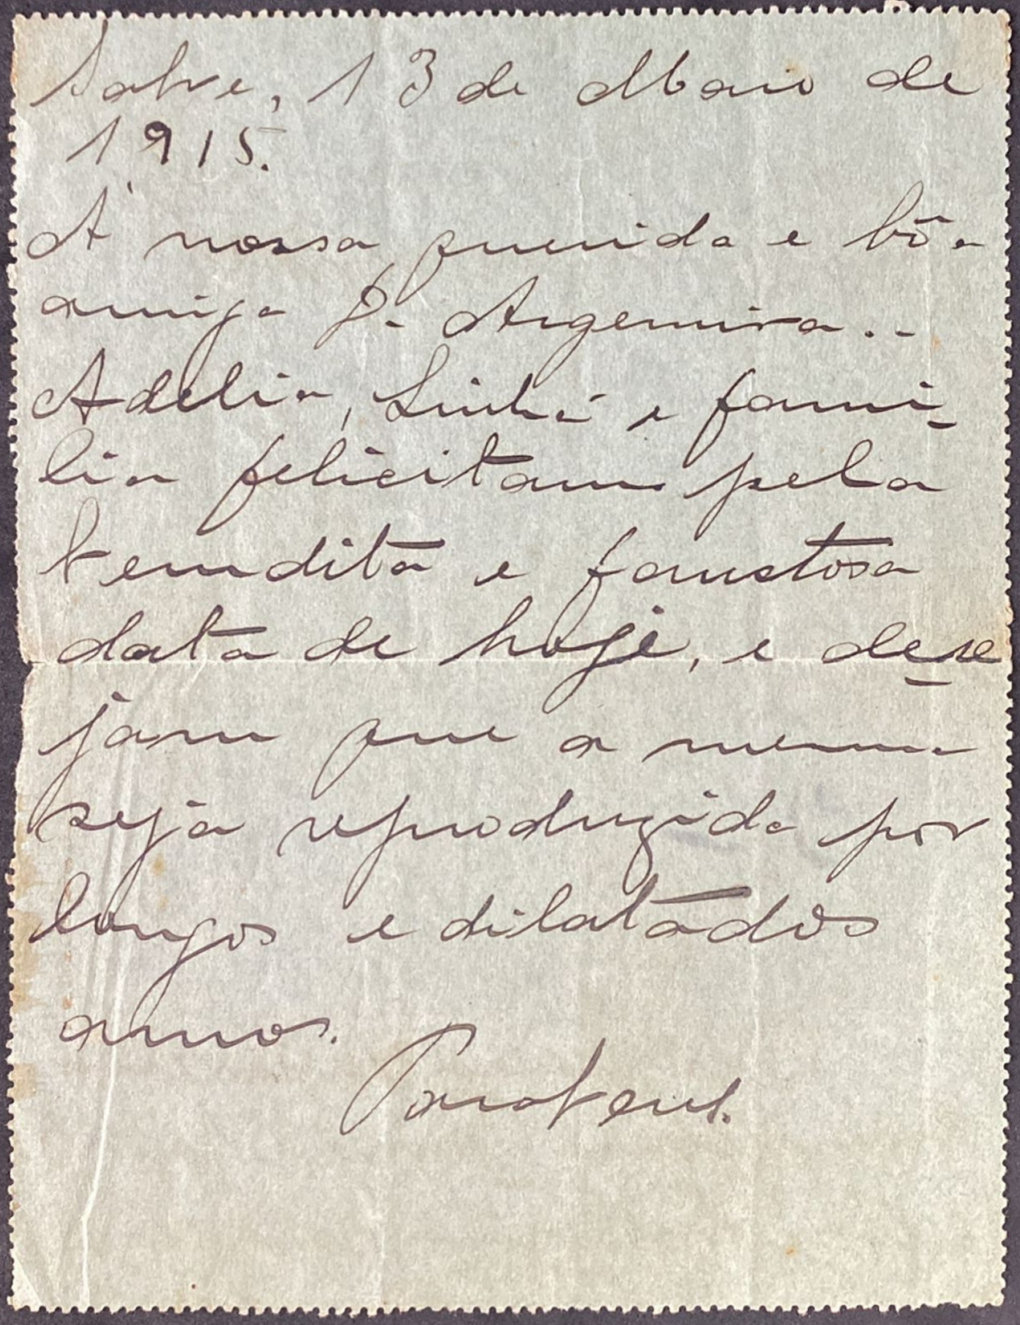 Salve, 13 de Maio de
1915.
A' nossa querida e bôa
amiga D. Argemira..
Adelia, Sinhá e fami-
lia felicitam pela
bemdita e faustosa
data de hoje, e dese
jam que a mesma
seja reproduzida por
longos e dilatados
annos.
Parabens.